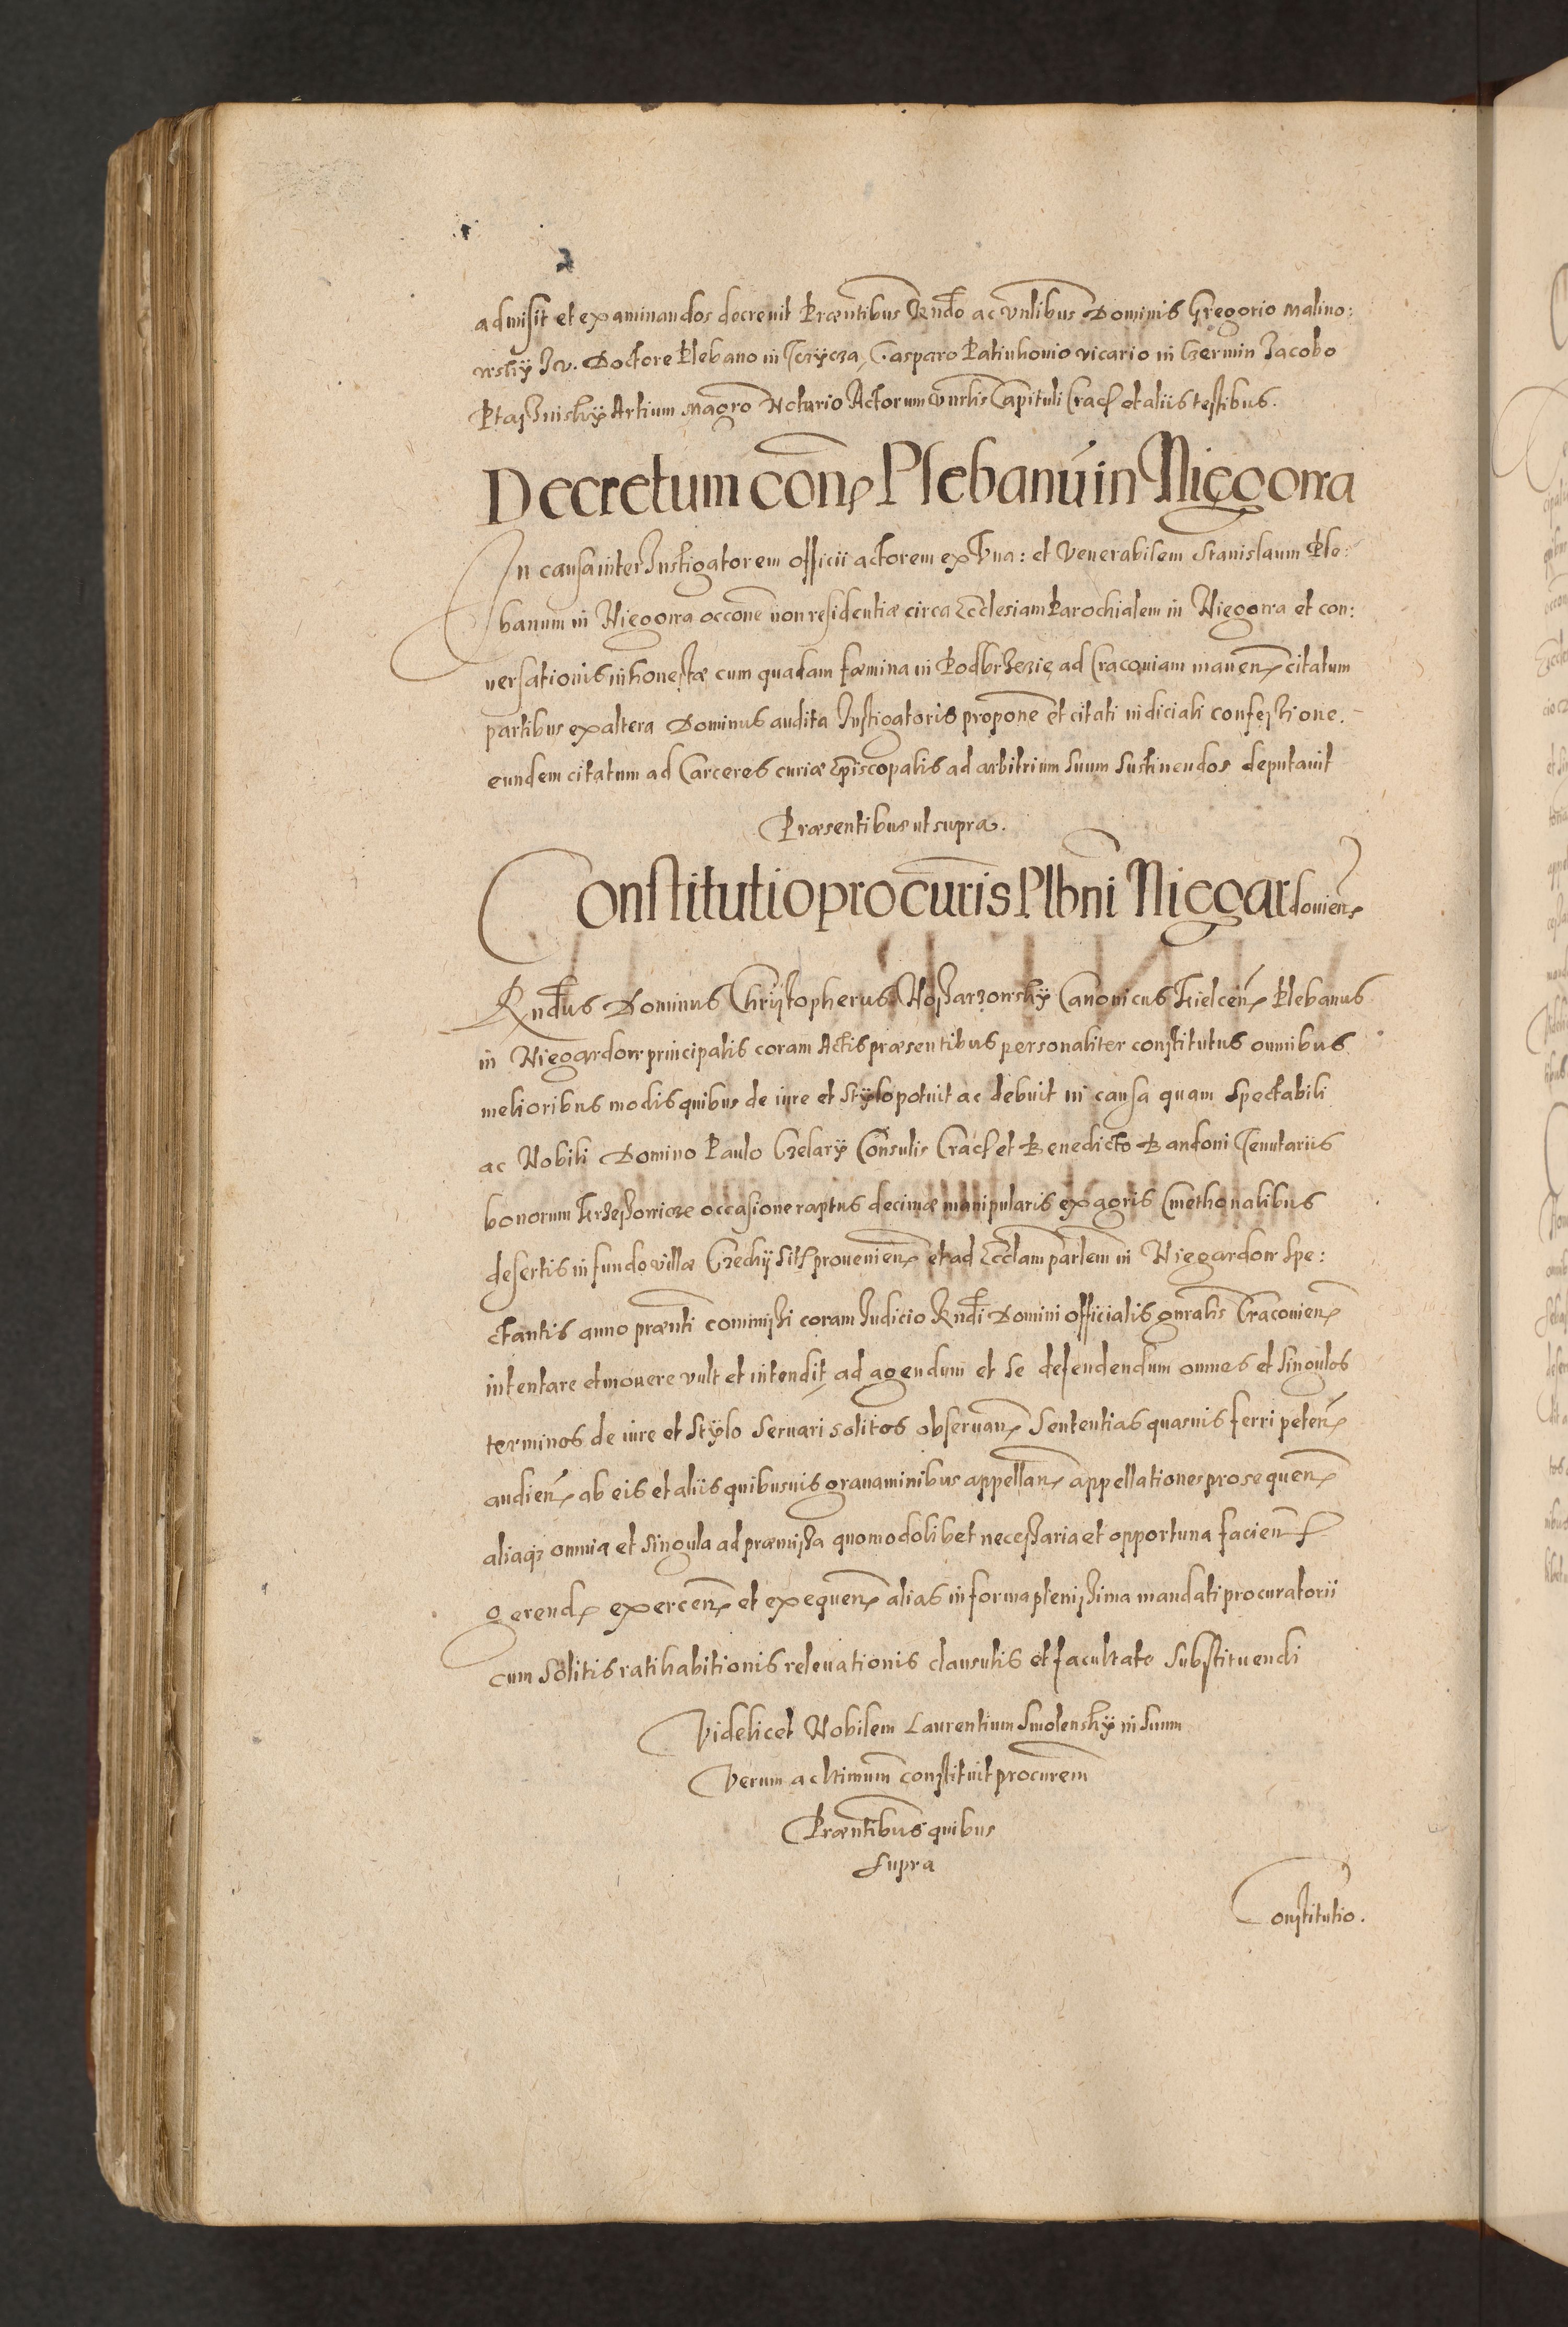 admisit et examinandos decrevit Praentibus Rndo ac vnlibus Dominis Gregorio Malino:
wsky Iu. Doctore Plebano in Tczycza, Casparo Patinkonio vicario in Czermin Jacobo
Ptaszinsky Artium Magro Notario Actorum Capituli Crac et aliis testibus.
Decretum con Plebanū in Niegowa
In causa inter Instigatorem officii actorem ex vna: et Venerabilem Stanislaum Ple:
banum in Niegowa occone non residentiæ circa Ecclesiam Parochialem in Niegowa et con:
uersationis inhonestæ cum quadam fœmina in Podbrzezie ad Cracouiam manen citatum
partibus ex altera Dominus audita Instigatoris propone et citati iudiciali confessione.
eundem citatum ad Carceres curiæ Episcopalis ad arbitrium suum sustinendos deputauit
Præsentibus ut supra.
Constitutio procuris Plbni Niegardouien
Rndus Dominus Christopherus Canonicus Kielcen Plebanus
in Niegardow principalis coram Actis præsentibus personaliter constitutus omnibus
melioribus modis quibus de iure et stylo potuit ac debuit in causa quam Spectabili
ac Nobili Domino Paulo Czelary Consulis Crac et Benedicto Bandoni Tenutariis
bonorum occasione raptus decimæ manipularis ex agris Cmethonalibus
desertis in fundo villæ Czechy sit prouenien et ad Ecclam parlem in Niegardow spe:
ctantis anno prænti commissi coram Iudicio Rndi Domini officialis gnralis Cracouien
intentare et mouere vult et intendit, ad agendum et se defendendum omnes et singulos
terminos de iure et stylo seruari solitos obseruan sententias quasuis ferri peten
audien ab eis et aliis quibusuis grauaminibus appellan appellationes prosequen
aliaq; omnia et singula ad præmissa quomodolibet necessaria et opportuna facien
gerend exercen et exequen alias in forma plenissima mandati procuratorii
cum solitis ratihabitionis releuationis clausulis et facultate substituendi
Videlicet Nobilem Laurentium Smolensky in suum
Verum ac ltimum constituit procurem
Præntibus quibus
supra
Constitutio.